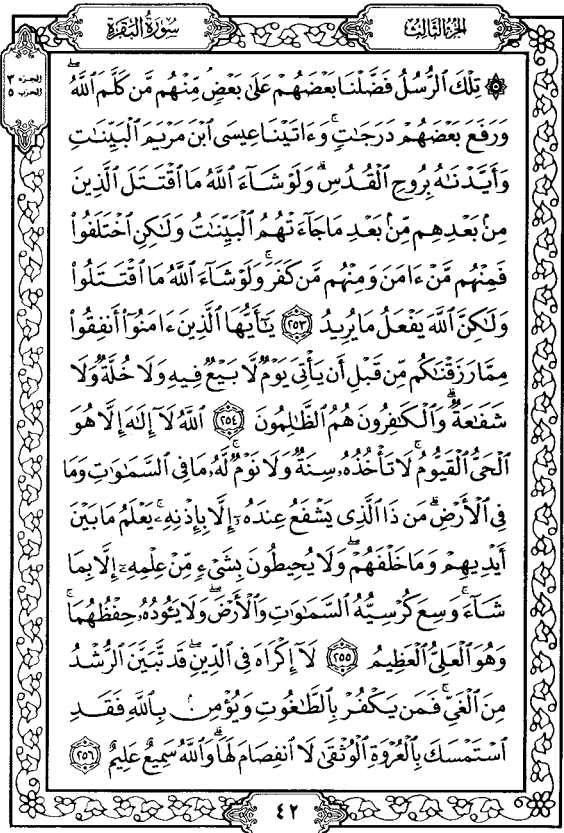 سُورَةُ البَقَرَةِ
الجُزْءُ الثَّالِثُ
الجزء ٣
الحزب ٥
۞ تِلْكَ ٱلرُّسُلُ فَضَّلْنَا بَعْضَهُمْ عَلَىٰ بَعْضٍۘ مِّنْهُم مَّن كَلَّمَ ٱللَّهُۖ
وَرَفَعَ بَعْضَهُمْ دَرَجَٰتٍۚ وَءَاتَيْنَا عِيسَى ٱبْنَ مَرْيَمَ ٱلْبَيِّنَٰتِ
وَأَيَّدْنَٰهُ بِرُوحِ ٱلْقُدُسِۗ وَلَوْ شَآءَ ٱللَّهُ مَا ٱقْتَتَلَ ٱلَّذِينَ
مِنۢ بَعْدِهِم مِّنۢ بَعْدِ مَا جَآءَتْهُمُ ٱلْبَيِّنَٰتُ وَلَٰكِنِ ٱخْتَلَفُوا۟
فَمِنْهُم مَّنْ ءَامَنَ وَمِنْهُم مَّن كَفَرَۚ وَلَوْ شَآءَ ٱللَّهُ مَا ٱقْتَتَلُوا۟
وَلَٰكِنَّ ٱللَّهَ يَفْعَلُ مَا يُرِيدُ ٢٥٣ يَٰٓأَيُّهَا ٱلَّذِينَ ءَامَنُوٓا۟ أَنفِقُوا۟
مِمَّا رَزَقْنَٰكُم مِّن قَبْلِ أَن يَأْتِىَ يَوْمٌ لَّا بَيْعٌ فِيهِ وَلَا خُلَّةٌ وَلَا
شَفَٰعَةٌۗ وَٱلْكَٰفِرُونَ هُمُ ٱلظَّٰلِمُونَ ٢٥٤ ٱللَّهُ لَآ إِلَٰهَ إِلَّا هُوَ
ٱلْحَىُّ ٱلْقَيُّومُۚ لَا تَأْخُذُهُۥ سِنَةٌ وَلَا نَوْمٌۚ لَّهُۥ مَا فِى ٱلسَّمَٰوَٰتِ وَمَا
فِى ٱلْأَرْضِۗ مَن ذَا ٱلَّذِى يَشْفَعُ عِندَهُۥٓ إِلَّا بِإِذْنِهِۦۚ يَعْلَمُ مَا بَيْنَ
أَيْدِيهِمْ وَمَا خَلْفَهُمْۖ وَلَا يُحِيطُونَ بِشَىْءٍ مِّنْ عِلْمِهِۦٓ إِلَّا بِمَا
شَآءَۚ وَسِعَ كُرْسِيُّهُ ٱلسَّمَٰوَٰتِ وَٱلْأَرْضَۖ وَلَا يَـُٔودُهُۥ حِفْظُهُمَاۚ
وَهُوَ ٱلْعَلِىُّ ٱلْعَظِيمُ ٢٥٥ لَآ إِكْرَاهَ فِى ٱلدِّينِۖ قَد تَّبَيَّنَ ٱلرُّشْدُ
مِنَ ٱلْغَىِّۚ فَمَن يَكْفُرْ بِٱلطَّٰغُوتِ وَيُؤْمِنۢ بِٱللَّهِ فَقَدِ
ٱسْتَمْسَكَ بِٱلْعُرْوَةِ ٱلْوُثْقَىٰ لَا ٱنفِصَامَ لَهَاۗ وَٱللَّهُ سَمِيعٌ عَلِيمٌ ٢٥٦
٤٢